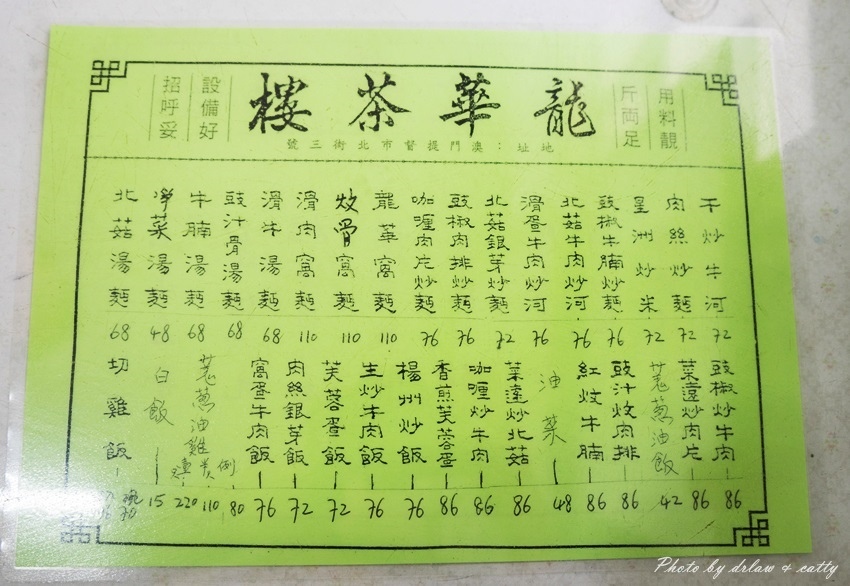 用料靚
斤両足
龍華茶樓
設備好
招呼妥
地址:澳門提督市北街三號
干炒牛河 72
肉絲炒麵 72
星洲炒米 72
豉椒牛腩炒麵 76
北菇牛肉炒河 76
滑蛋牛肉炒河 76
北菇銀芽炒麵 72
豉椒肉排炒麵 76
咖喱肉片炒麵 76
龍華窩麵 110
炆骨窩麵 110
滑肉窩麵 110
滑牛湯麵 68
豉汁骨湯麵 68
牛腩湯麵 68
淨菜湯麵 48
北菇湯麵 68
豉椒炒牛肉 86
菜遠炒肉片 86
薑葱油飯 42
豉汁炆肉排 86
紅炆牛腩 86
油菜 48
菜遠炒北菇 86
咖喱炒牛肉 86
香煎芙蓉蛋 86
楊州炒飯 76
生炒牛肉飯 76
芙蓉蛋飯 72
肉絲銀芽飯 72
窩蛋牛肉飯 76
薑葱油雞 例 80 110 220
白飯 15
切雞飯 碗 70
Photo by drlaw & catty